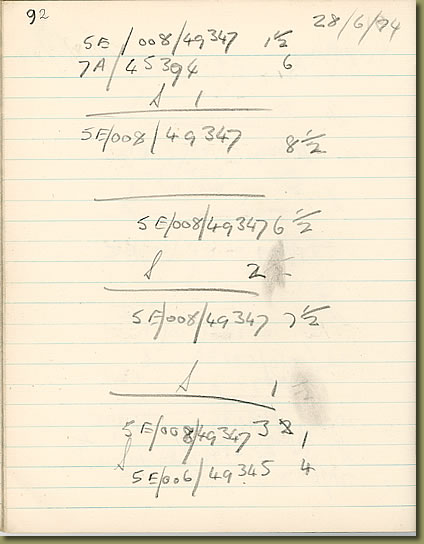 92
28/6/74
5E/008/49347 1½
7A/45394 6
S 1
5E/008/49347 8½
5E/008/49347 6½
S 2
5E/008/49347 7½
S 1
5E/008/49347 3 1
S
5E/006/49345 4